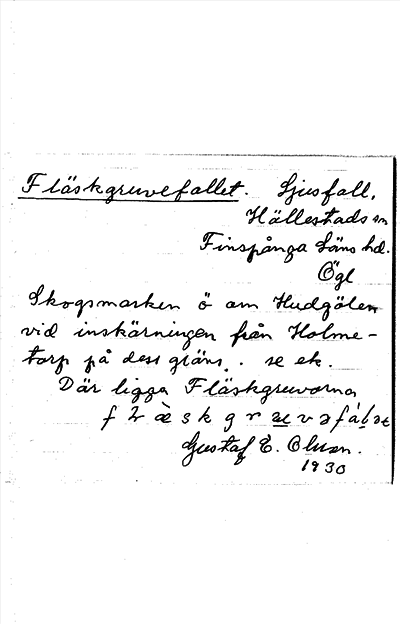 Fläskgruvefallet. Ljusfall,
Hällestads sn
Finspånga läns hd.
Ögl
Skogsmarken ö om Hudgölen
vid inskärningen från Holme-
torp på dess gräns. se ek.
Där ligga Fläskgruvorna
Gustaf E. Olsson.
1930